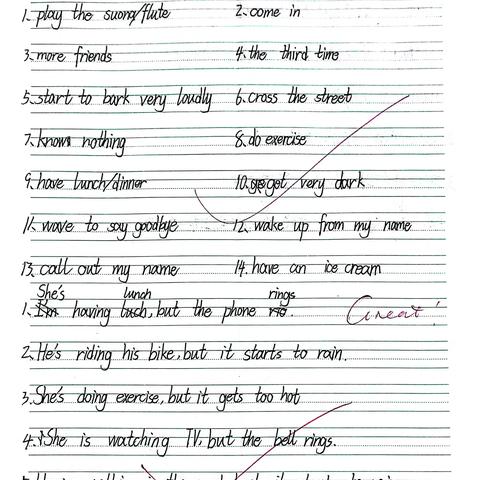 1. play the suona/flute 2. come in
3. more friends 4. the third time
5. start to bark very loudly 6. cross the street
7. know nothing 8. do exercise
9. have lunch/dinner 10. get very dark
11. wave to say goodbye 12. wake up from my name
13. call out my name 14. have an ice cream
She's lunch rings
1. I'm having lush, but the phone . Great!
2. He's riding his bike, but it starts to rain.
3. She's doing exercise, but it gets too hot
4. She is watching TV, but the bell rings.